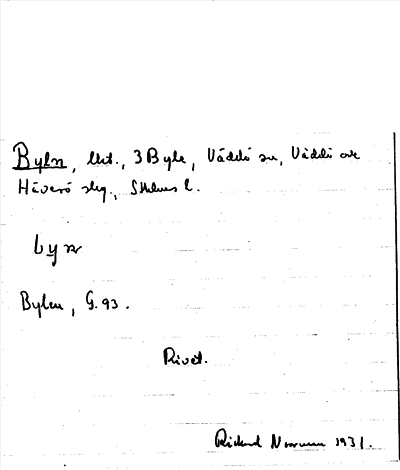 Bylen, lht., 3 Byle, Väddö sn, Väddö och
Häverö slg., Sthlms l.
Bylen, G. 93.
Rivet.
Rickard Norman 1931.